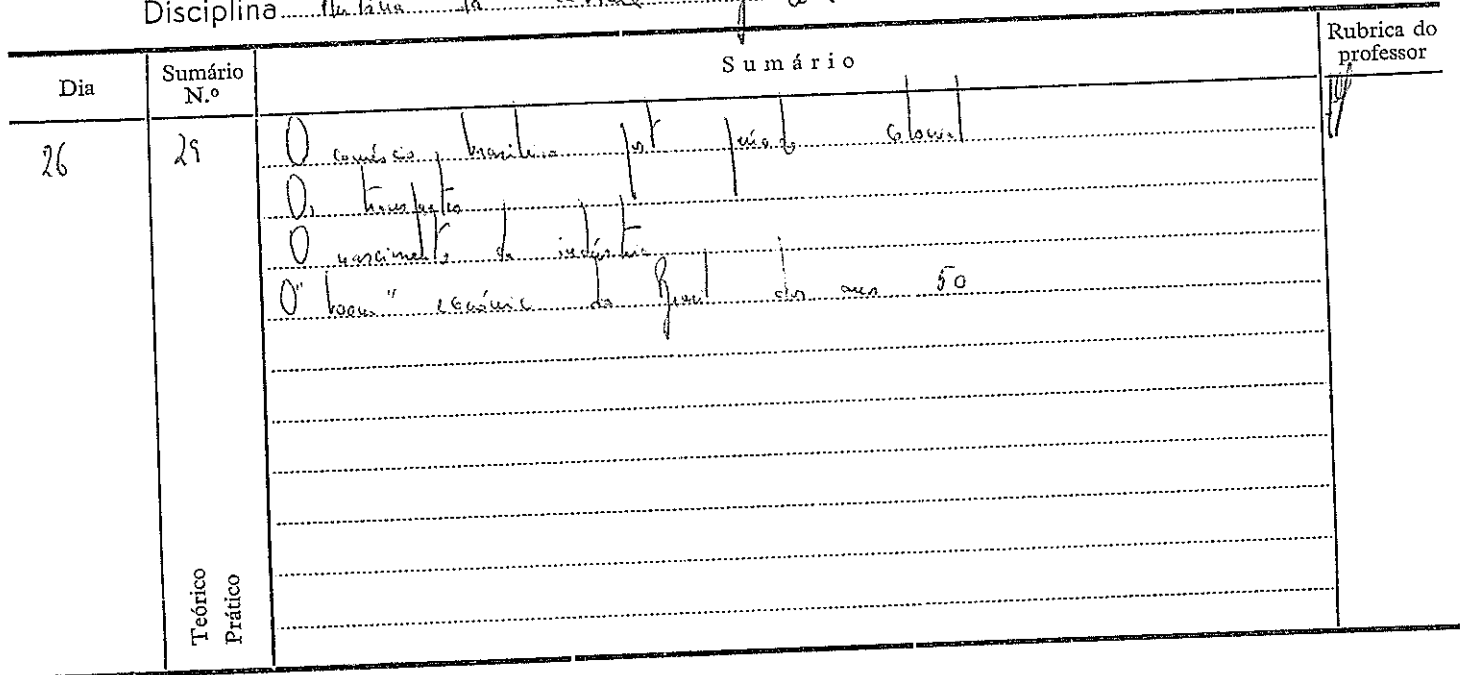 Disciplina História da
Dia
Sumário N.º
Sumário
Rubrica do professor
26
29
O comércio brasileiro no período colonial
Os transportes
O nascimento da indústria
O "boom" económico do Brasil dos anos 50
Teórico
Prático